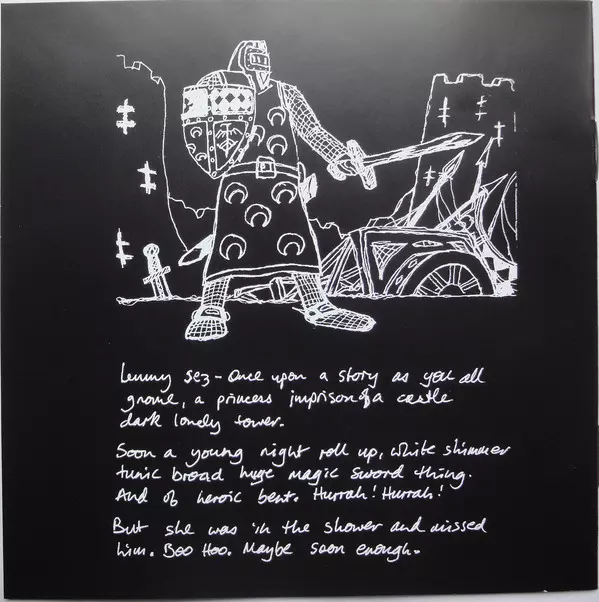 Lemmy sez - Once upon a story as you all
gnome, a princess imprison of a castle
dark lonely tower.
Soon a young night roll up, white shimmer
tunic broad huge magic sword thing.
And of heroic bent. Hurrah! Hurrah!
But she was in the shower and missed
him. Boo Hoo. Maybe soon enough.